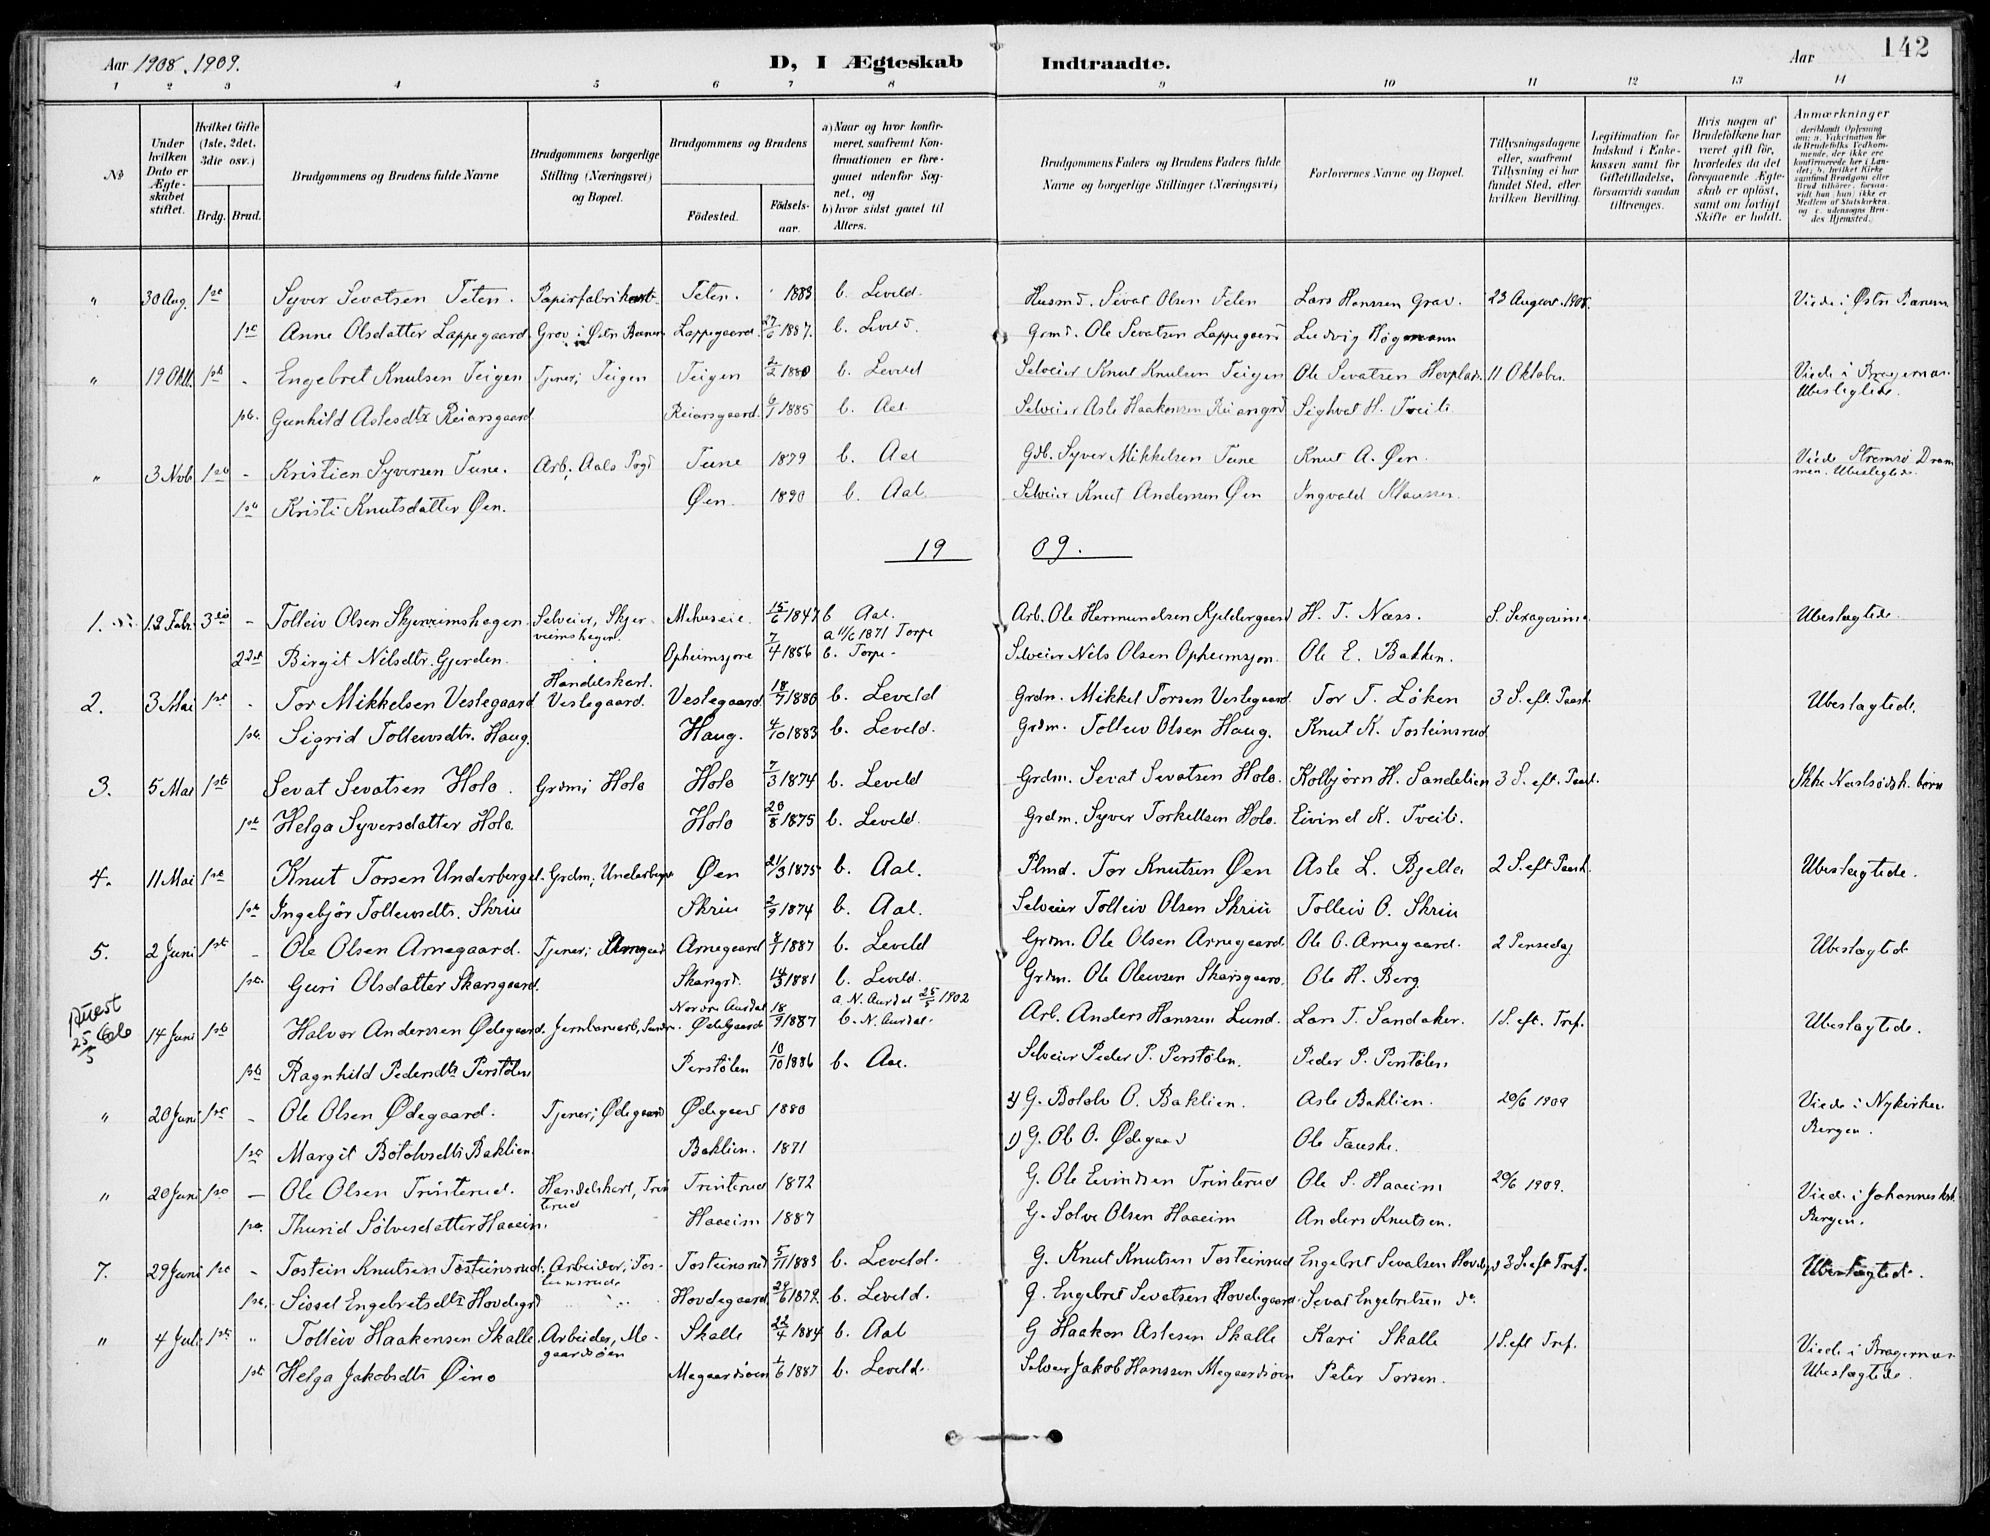 Aar 1908, 1909. D, I Ægteskab Indtraadte. Aar 142
1 2 3 4 5 6 7 8 9 10 11 12 13 14
No
Under hvilken Dato er Ægteskabet stiftet.
Hvilket Gifte (1ste, 2det, 3die osv.)
Brdg. Brud.
Brudgommens og Brudens fulde Navne
Brudgommens borgerlige Stilling (Næringsvei) og Bopæl.
Brudgommens og Brudens
Fødested. Fødselsaar.
a) Naar og hvor konfirmeret, saafremt Konfirmationen er foregaaet udenfor Sognet, og
b) hvor sidst gaaet til Alters.
Brudgommens Faders og Brudens Faders fulde Navne og borgerlige Stillinger (Næringsvei)
Forlovernes Navne og Bopæl.
Tillysningsdagene eller, saafremt Tillysning ei har fundet Sted, efter hvilken Bevilling.
Legitimation for Indskud i Enkekassen samt for Giftetilladelse, forsaavidt saadan tiltrænges.
Hvis nogen af Brudefolkene har været gift før, hvorledes da det foregaaende Ægteskab er opløst, samt om lovligt Skifte er holdt.
Anmærkninger
deriblandt Oplysning om: a. Vakcination for de Brudefolks Vedkommende, der ikke ere konfirmerede her i Landet; b. hvilket Kirkesamfund Brudgom eller Brud tilhører, forsaavidt han (hun) ikke er Medlem af Statskirken, og c. udensogns Brudes Hjemsted.
" 30 Aug. 1ste Syver Sevatsen Teten. Papirfabrikarb. Teten. 1883 b. Leveld. Husmd. Sevat Olsen Teten Lars Hanssen Grav. 23 August 1908. Viede i Østre Bærum
1ste Anne Olsdatter Lappegaard. Grav i Østre Bærum Lappegaard 27/6 1887. b. Leveld. Grmd. Ole Sevatsen Lappegaard Ludvig Høgmann
" 19 Okt. 1ste - Engebret Knutsen Teigen Tjener, Teigen Teigen 2/2 1880 b. Leveld Selveier Knut Knutsen Teigen Ole Sevatsen Hovplads. 11 Oktober. Viede i Bragernæs
Ubeslegtede.
1ste. Gunhild Aslesdtr Reiarsgaard Reiarsgaard. 6/1 1885 b. Aal Selveier Asle Haakensen Reiarsgrd Sighvat H. Tveito
" 3 Nob. 1ste - Kristian Syversen Tune. Arb., Aals Pgd Tune 1879 b. Aal Gdb. Syver Mikkelsen Tune Knut A. Øen. Viede Strømsø Drammen. Ubeslegtede.
1ste Kristi Knutsdatter Øen. Øen. 1890 b. Aal. Selveier Knut Andersen Øen Ingvald Klausen.
19 09.
1. 12 Febr. 3die - Tolleiv Olsen Skjerveimshagen. Selveier, Skjerveimshagen. Mehuseie. 15/6 1847 b Aal. Arb. Ole Hermundsen Kjeldergaard H. T. Næss. S. Sexagesima Ubeslegtede.
22et Birgit Nilsdtr. Gjerden. Opheimsjore 7/4 1856 a 11/6 1871 Torpe b. Torpe. Selveier Nils Olsen Opheimsjon. Ole E. Bakken.
2. 3 Mai 1ste - Tor Mikkelsen Vestegaard Handelskarl. Vestegaard. Vestegaard. 18/7 1880 b. Leveld Grdm. Mikkel Torsen Vestegaard Tor T. Løken 3 S. eft. Paask. Ubeslagtede.
1ste. Sigrid Tolleivsdtr. Haug. Haug. 4/10 1883 b. Leveld. Grdm. Tolleiv Olsen Haug. Knut K. Tosteinsrud
3. 5 Mai 1ste Sevat Sevatsen Holo. Grdmi Holo Holo 7/3 1874 b. Leveld Grdm. Sevat Sevatsen Holo. Kolbjørn H. Sandelien 3 S. eft. Paask. Ikke Næstsødsk. børn
1ste Helga Syversdatter Holo. Holo 20/8 1875 b. Leveld. Grdm. Syver Torkellsen Holo. Eivind K. Tveito.
4. 11 Mai 1ste Knut Torsen Underberget. Grdm, Underberget Øen 21/3 1875 b. Aal. Plmd. Tor Knutsen Øen Asle L. Bjella 2 S. eft Paask. Ubeslagtede.
1ste Ingebjør Tolleivsdtr. Skriu Skriu 2/9 1874 b. Aal. Selveier Tolleiv Olsen Skriu Tolleiv O. Skriu
5. 2 Juni 1ste - Ole Olsen Arnegaard. Tjener, Arnegaard Arnegaard 8/1 1887 b. Leveld Grdm. Ole Olsen Arnegaard. Ole O. Arnegaard. 2 Pinsedag Ubeslagtede
1ste. Guri Olsdatter Skarsgaard. Skarsgrd. 14/3 1881 b. Leveld. Grdm. Ole Olewsen Skarsgaard. Ole H. Berg.
25/5 14 Juni 1ste Halvor Anderssen Ødegaard. Jernbanearb, Nordre Aurdal Ødegaard 18/9 1887 a. N. Aurdal 25/5 1902 b. N. Aurdal. Arb. Anders Hanssen Lund. Lars T. Sandaker. 1 S. eft. Tref. Ubeslagtede.
1ste Ragnhild Pedersdtr Perstølen Perstølen 10/10 1886 b. Aal. Selveier Peder P. Perstølen. Peder P. Perstølen
" 20 Juni 1ste - Ole Olsen Ødegaard. Tjener, Ødegaard Ødegaard 1880 2) G. Botolv O. Baklien. Asle Baklien. 20/6 1909 Viede i Nykirken Bergen.
1ste Margit Botolvsdtr Baklien. Baklien. 1871 1) G. Ole O. Ødegaard Ole Fauske.
" 20 Juni 1ste - Ole Olsen Trinterud. Handelskarl, Trinterud Trinterud 1872 G. Ole Eivindsen Trinterud Ole S. Haaeim 20/6 1909. Viede i Johanneskk. Bergen.
1ste. Thurid Sølvesdatter Haaeim. Haaeim 1887 G. Solve Olsen Haaeim Anders Knutsen.
7. 29 Juni 1ste - Tostein Knutsen Tosteinsrud. Arbeider, Tosteinsrud Tosteinsrud 5/11 1883 b. Leveld. G. Knut Knutsen Tosteinsrud Engebret Sevatsen Hovdegrd 3 S. eft Tref. Ubeslagtede.
1ste. Sissel Engebretsdtr Hovdegrd Hovdegaard. 29/6 1872 b. Leveld. G. Engebret Sevatsen Hovdegaard. Sevat Engebretsen do
" 4 Juli 1ste " Tolleiv Haakensen Skalle. Arbeider, Megaardsøen Skalle 22/4 1884 b. Aal G Haakon Aslesen Skalle Kari Skalle 1 S. eft Tref. Viede i Bragernæs
Ubeslagtede.
1ste Helga Jakobsdtr Øino Megaardsøen 1/6 1887 b. Leveld. Selveier Jakob Hanssen Megaardsøen Peter Torsen.